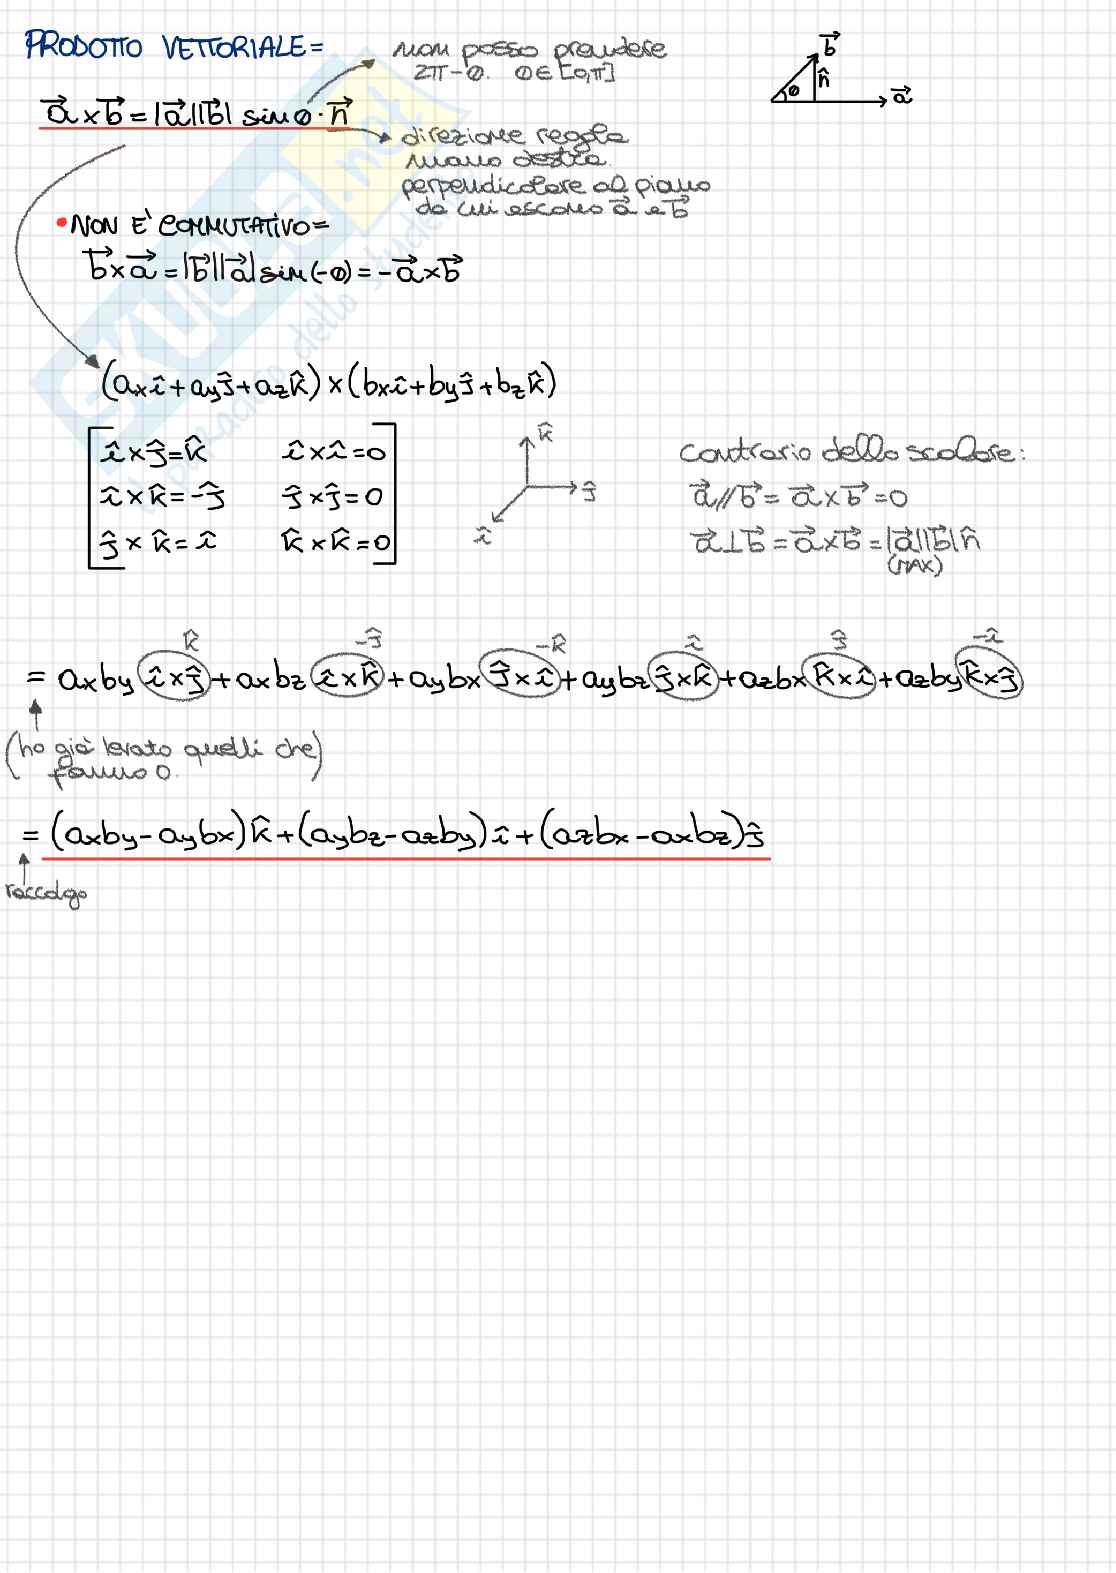 PRODOTTO VETTORIALE =
non posso prendere
2π-θ. θ∈[0,π]
b⃗
n̂
θ
a⃗
a⃗ x b⃗ = |a⃗||b⃗| sin θ · n⃗
direzione regola
mano destra.
perpendicolare al piano
da cui escono a⃗ e b⃗
• NON E' COMMUTATIVO =
b⃗ x a⃗ = |b⃗||a⃗| sin(-θ) = - a⃗ x b⃗
(axî + ayĵ + azk̂) x (bxî + byĵ + bzk̂)
î x ĵ = k̂ î x î = 0
î x k̂ = -ĵ ĵ x ĵ = 0
ĵ x k̂ = î k̂ x k̂ = 0
k̂
ĵ
î
contrario dello scalare:
a⃗ // b⃗ = a⃗ x b⃗ = 0
a⃗ ⊥ b⃗ = a⃗ x b⃗ = |a⃗||b⃗| n̂
(MAX)
k̂ -ĵ -k̂ î ĵ -î
= axby î x ĵ + axbz î x k̂ + aybx ĵ x î + aybz ĵ x k̂ + azbx k̂ x î + azby k̂ x ĵ
(ho già levato quelli che)
fanno 0.
= (axby - aybx) k̂ + (aybz - azby) î + (azbx - axbz) ĵ
raccolgo
SKUOLA.net